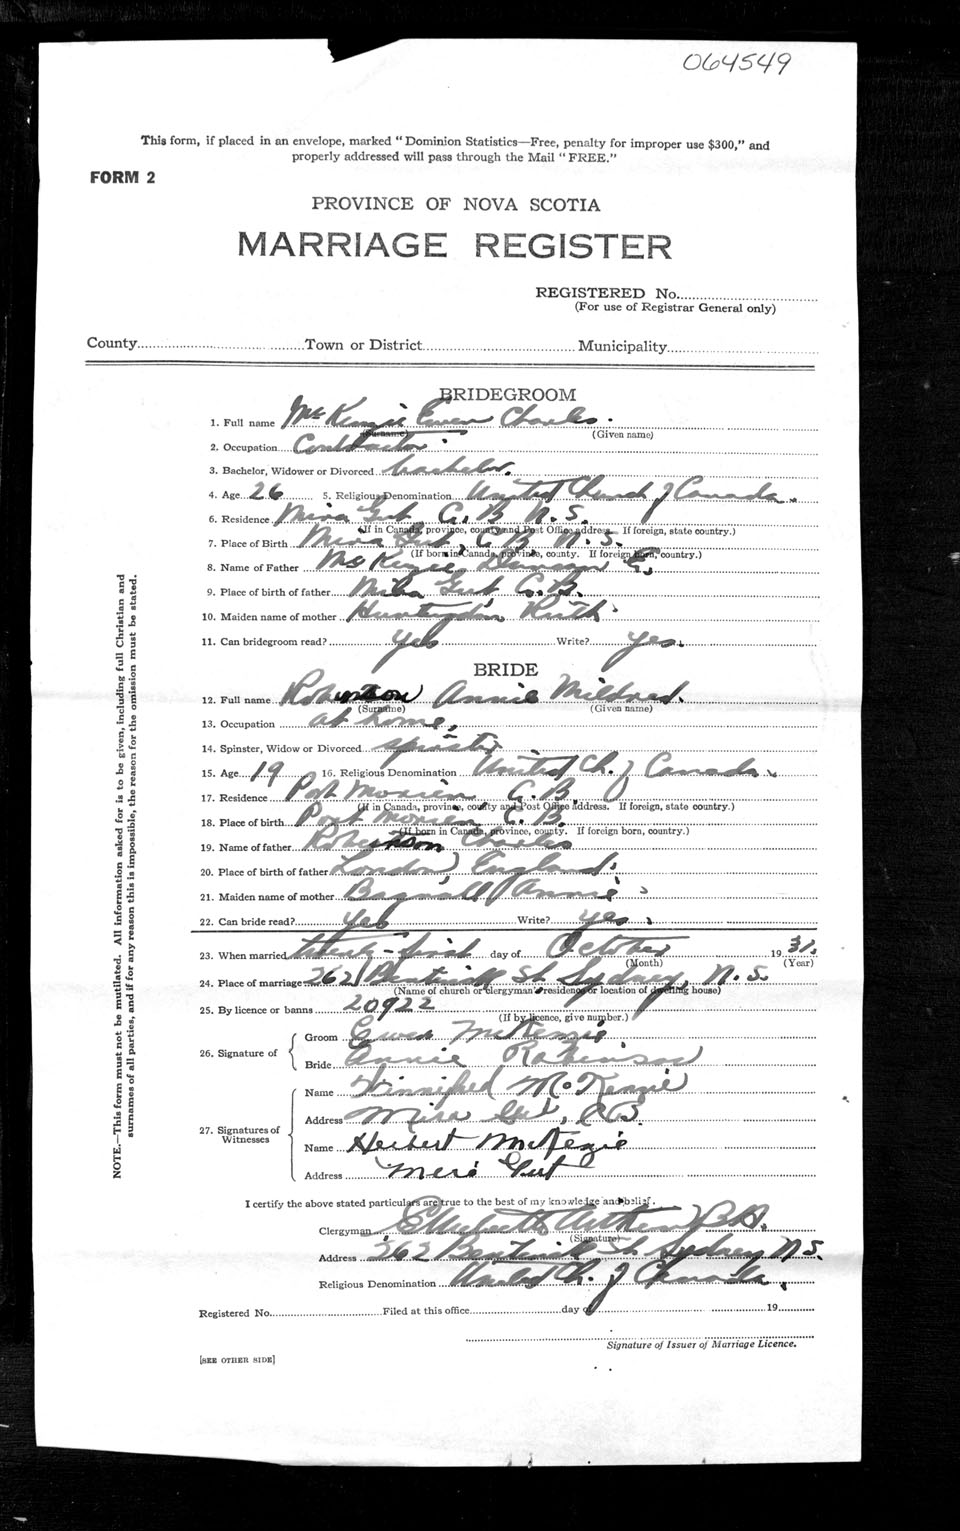 064549
This form, if placed in an envelope, marked "Dominion Statistics—Free, penalty for improper use $300," and
properly addressed will pass through the Mail "FREE."
FORM 2
PROVINCE OF NOVA SCOTIA
MARRIAGE REGISTER
REGISTERED No.
(For use of Registrar General only)
County Town or District Municipality
BRIDEGROOM
1. Full name McKenzie Ewen Charles.
(Surname) (Given name)
2. Occupation Contractor
3. Bachelor, Widower or Divorced bachelor.
4. Age 26 5. Religious Denomination United Church of Canada.
6. Residence Mira Gut C. B. N. S.
(If in Canada, province, county and Post Office address. If foreign, state country.)
7. Place of Birth Mira Gut, C. B. N. S.
(If born in Canada, province, county. If foreign born, country.)
8. Name of Father McKenzie, Duncan E.
9. Place of birth of father Mira Gut C. B.
10. Maiden name of mother Huntington Ruth.
11. Can bridegroom read? yes Write? yes.
BRIDE
12. Full name Robinson Annie Mildred.
(Surname) (Given name)
13. Occupation at home.
14. Spinster, Widow or Divorced spinster
15. Age 19 16. Religious Denomination United Ch. of Canada.
17. Residence Port Morien C. B.
(If in Canada, province, county and Post Office address. If foreign, state country.)
18. Place of birth Port Morien C. B.
(If born in Canada, province, county. If foreign born, country.)
19. Name of father Robinson Charles
20. Place of birth of father London, England.
21. Maiden name of mother Bagnall Annie
22. Can bride read? yes Write? yes.
23. When married twenty-first day of October 19 31.
(Month) (Year)
24. Place of marriage 262 Bentinck St. Sydney, N. S.
(Name of church or clergyman's residence or location of dwelling house)
25. By licence or banns 20922
(If by licence, give number.)
26. Signature of
Groom Ewen McKenzie
Bride Annie Robinson
27. Signatures of Witnesses
Name Winnifred McKenzie
Address Mira Gut, C.B.
Name Herbert McKezie
Address Mera Gut
I certify the above stated particulars are true to the best of my knowledge and belief.
Clergyman B.A.
(Signature)
Address 262 Bentinck St. Sydney N. S.
Religious Denomination United Ch. of Canada.
Registered No. Filed at this office day of 19
Signature of Issuer of Marriage Licence.
[SEE OTHER SIDE]
NOTE.—This form must not be mutilated. All information asked for is to be given, including full Christian and
surnames of all parties, and if for any reason this is impossible, the reason for the omission must be stated.